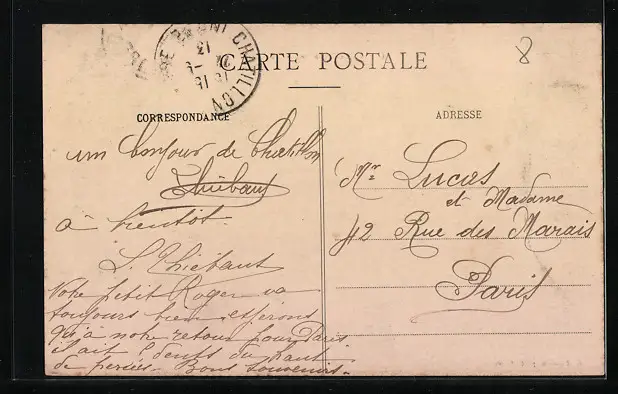 CHATILLON
CARTE POSTALE
8
CORRESPONDANCE
ADRESSE
un bonjour de Chatillon
Thiébaut
à bientot.
L. Thiébaut
Notre petit Roger va
toujours bien espérons
qu'à notre retour pour Paris
il ait 2 dents du haut
de percées. Bons souvenirs.
Mr Lucas
et Madame
42 Rue des Marais
Paris